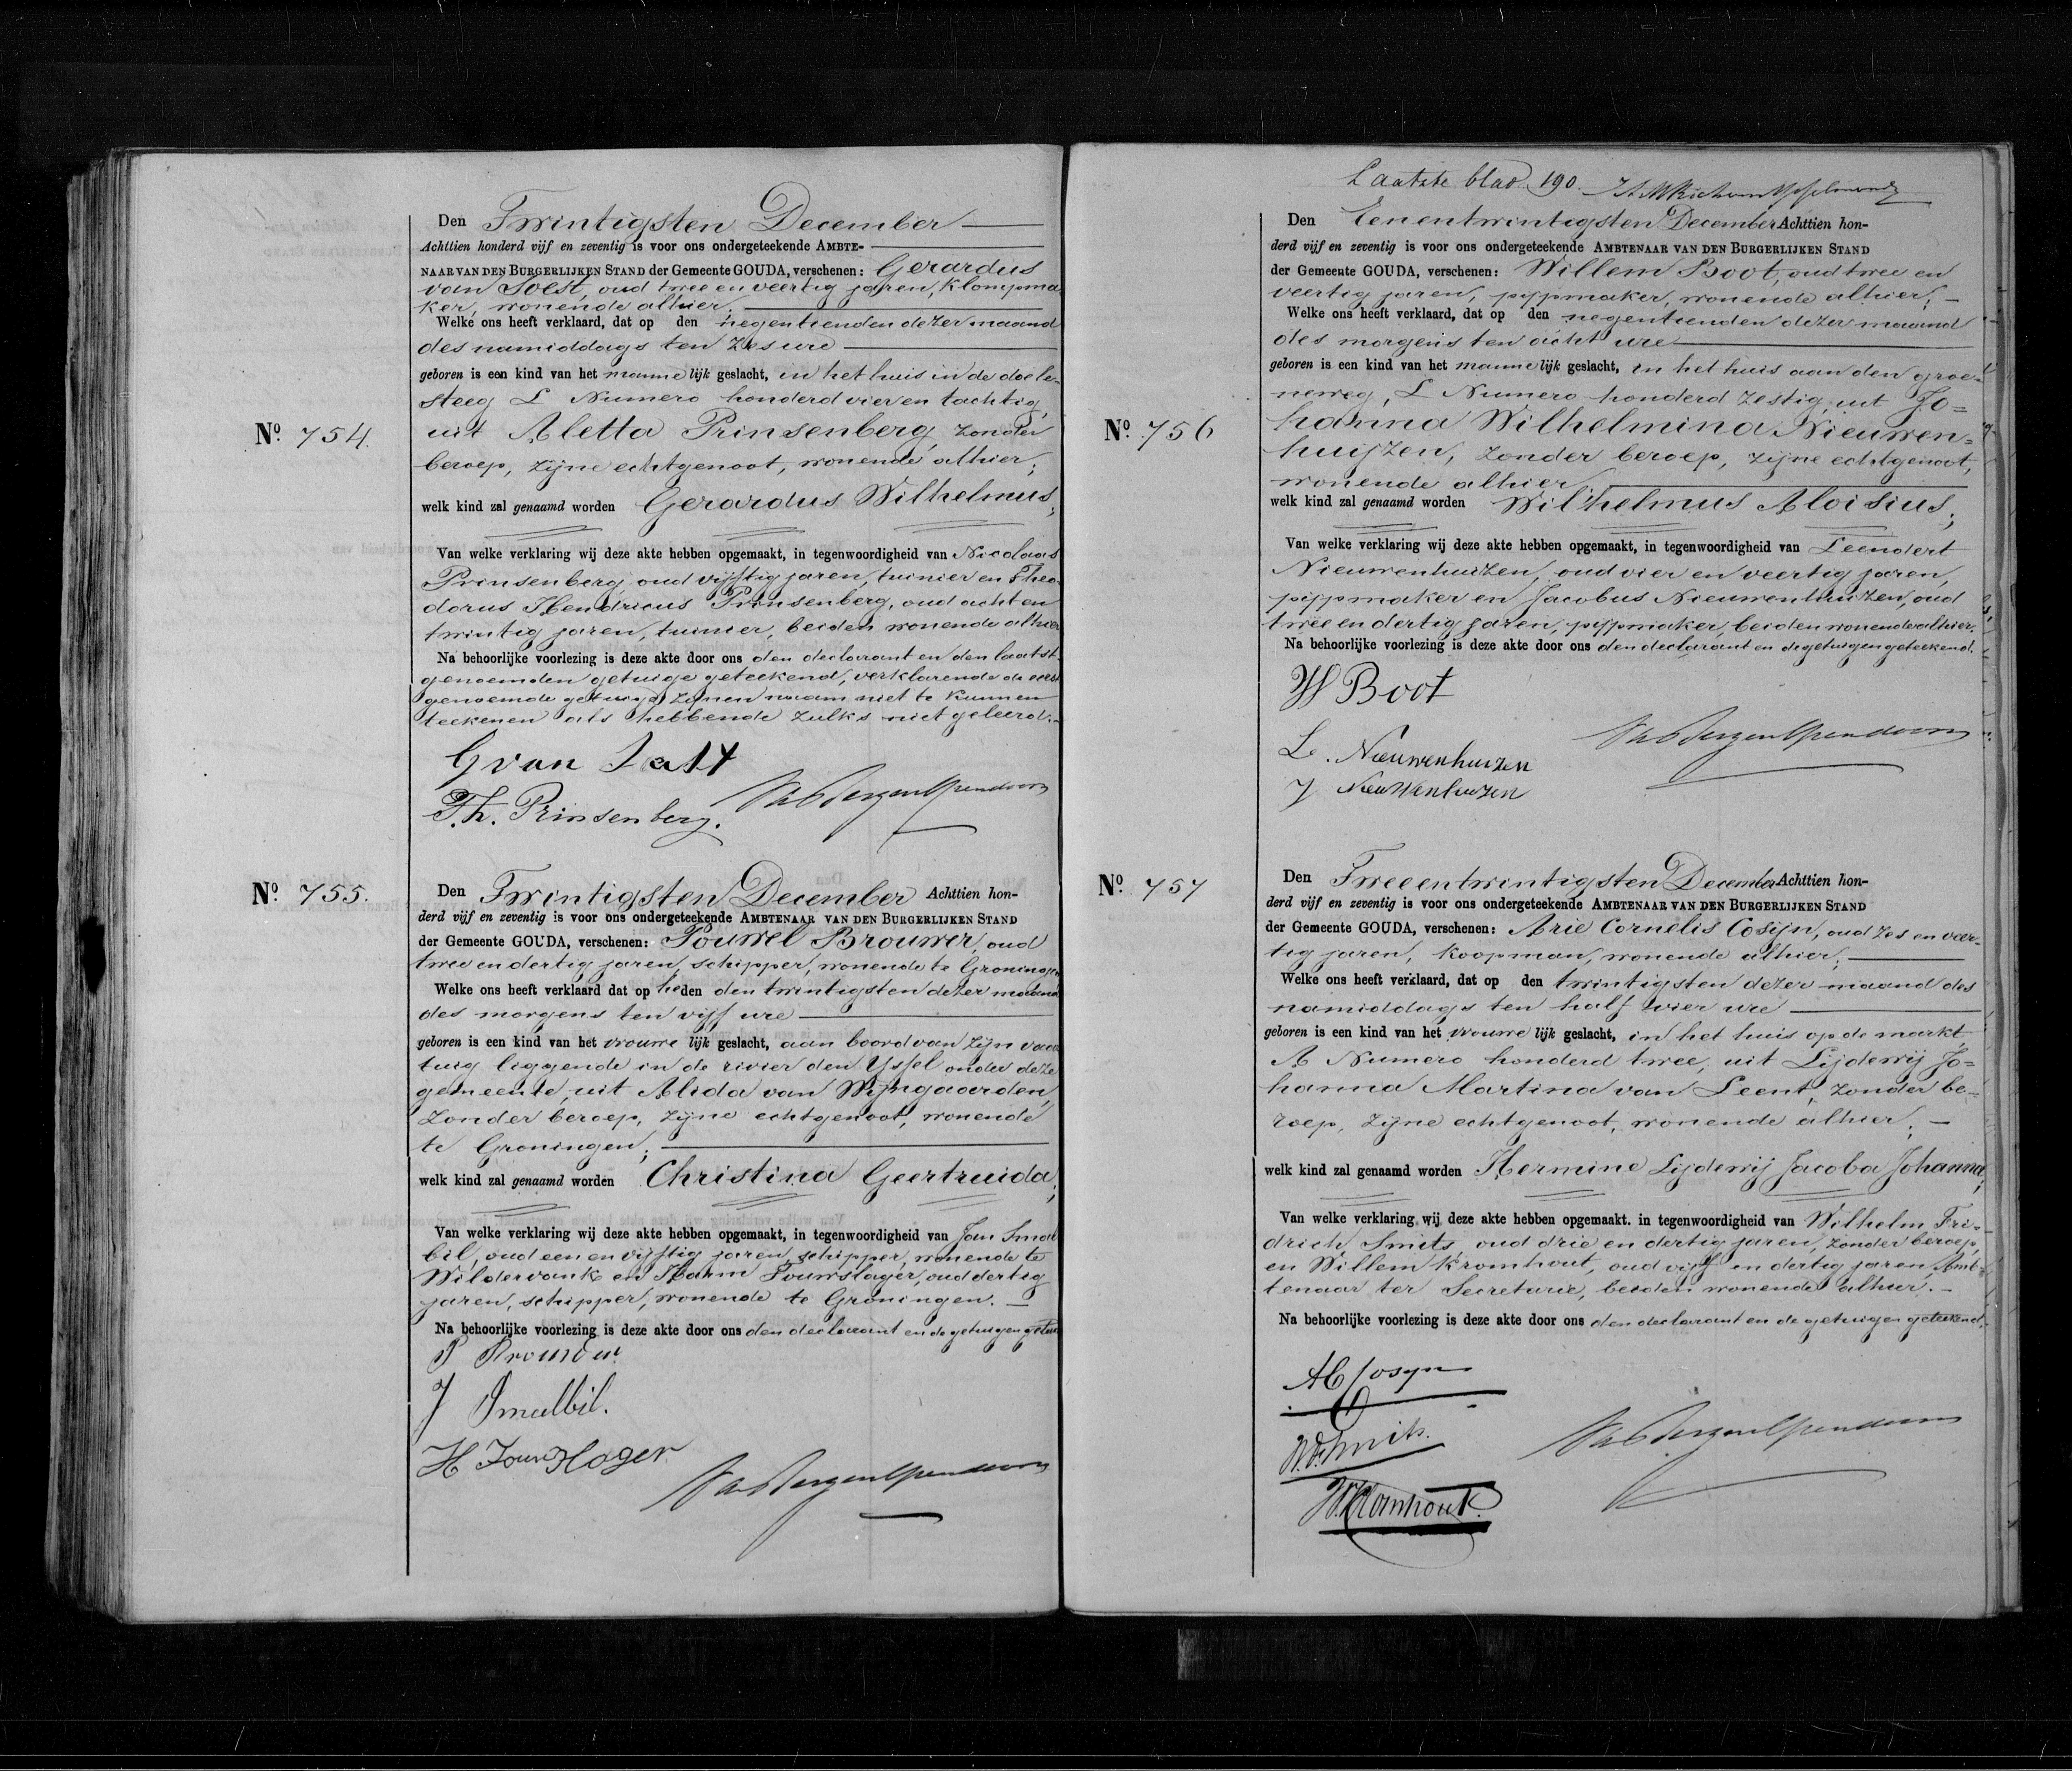 Den Twintigsten December
Achttien honderd vijf en zeventig is voor ons ondergeteekende AMBTE-
NAAR VAN DEN BURGERLIJKEN STAND der Gemeente GOUDA, verschenen: Gerardus
van Soest, oud twee en veertig jaren, klompma
ker, wonende alhier;
Welke ons heeft verklaard, dat op den negentienden dezer maand
des namiddags ten zes ure
geboren is een kind van het mannelijk geslacht, in het huis in de doele-
steeg L Numero honderd vier en tachtig,
No. 754.
uit Aletta Prinsenberg, zonder
beroep, zijne echtgenoot, wonende alhier;
welk kind zal genaamd worden Gerardus Wilhelmus;
Van welke verklaring wij deze akte hebben opgemaakt, in tegenwoordigheid van Nicolaas
Prinsenberg, oud vijftig jaren, tuinier en Theo-
dorus Hendricus Prinsenberg, oud acht en
twintig jaren, tuinier, beiden wonende alhier
Na behoorlijke voorlezing is deze akte door ons den declarant en den laatst
genoemden getuige geteekend, verklarende de eerst
genoemde getuige zijnen naam niet te kunnen
teekenen als hebbende zulks niet geleerd.
G van
Th. Prinsenberg.
No. 755.
Den Twintigsten December Achttien hon-
derd vijf en zeventig is voor ons ondergeteekende AMBTENAAR VAN DEN BURGERLIJKEN STAND
der Gemeente GOUDA, verschenen: Pouwel Brouwer, oud
twee en dertig jaren, schipper, wonende te Groningen
Welke ons heeft verklaard dat op heden den twintigsten dezer maand
des morgens ten vijf ure
geboren is een kind van het vrouwelijk geslacht, aan boord van zijn vaar
tuig liggende in de rivier den IJssel onder deze
gemeente, uit Alida van Wijngaarden,
zonder beroep, zijne echtgenoot, wonende
te Groningen;
welk kind zal genaamd worden Christina Geertruida;
Van welke verklaring wij deze akte hebben opgemaakt, in tegenwoordigheid van Jan Smal
bil, oud een en vijftig jaren, schipper, wonende te
Wildervank en Harm Touwslager, oud dertig
jaren, schipper, wonende te Groningen.
Na behoorlijke voorlezing is deze akte door ons den declarant en de getuigen
P Brouwer
J Smalbil.
H
Laatste blad 190.
Den Eenentwintigsten December Achttien hon-
derd vijf en zeventig is voor ons ondergeteekende AMBTENAAR VAN DEN BURGERLIJKEN STAND
der Gemeente GOUDA, verschenen: Willem Boot, oud twee en
veertig jaren, pijpmaker, wonende alhier;
Welke ons heeft verklaard, dat op den negentienden dezer maand
des morgens ten acht ure
geboren is een kind van het mannelijk geslacht, in het huis aan den groe-
neweg, L Numero honderd zestig, uit Jo=
No. 756
hanna Wilhelmina Nieuwen=
huijzen, zonder beroep, zijne echtgenoot,
wonende alhier;
welk kind zal genaamd worden Wilhelmus Aloisius;
Van welke verklaring wij deze akte hebben opgemaakt, in tegenwoordigheid van Leendert
Nieuwenhuizen, oud vier en veertig jaren,
pijpmaker en Jacobus Nieuwenhuizen, oud
twee en dertig jaren, pijpmaker, beiden wonende alhier.
Na behoorlijke voorlezing is deze akte door ons den declarant en de getuigen geteekend.
W Boot
L. Nieuwenhuizen
J Nieuwenhuizen
No. 757
Den Tweeentwintigsten December Achttien hon-
derd vijf en zeventig is voor ons ondergeteekende AMBTENAAR VAN DEN BURGERLIJKEN STAND
der Gemeente GOUDA, verschenen: Arie Cornelis Cosijn, oud zes en veer-
tig jaren, koopman, wonende alhier;
Welke ons heeft verklaard, dat op den twintigsten dezer maand des
namiddags ten half vier ure
geboren is een kind van het vrouwelijk geslacht, in het huis op de markt
A Numero honderd twee, uit Lijdewij Jo=
hanna Martina van Leent, zonder be-
roep, zijne echtgenoot, wonende alhier;
welk kind zal genaamd worden Hermine Lijdewij Jacoba Johanna;
Van welke verklaring wij deze akte hebben opgemaakt. in tegenwoordigheid van Wilhelm Fri-
drich Smits, oud drie en dertig jaren, zonder beroep,
en Willem Kromhout, oud vijf en dertig jaren, Amb-
tenaar ter Secretarie, beiden wonende alhier.
Na behoorlijke voorlezing is deze akte door ons den declarant en de getuigen geteekend.
AC Cosijn
W.F. Smits.
W. Kromhout.